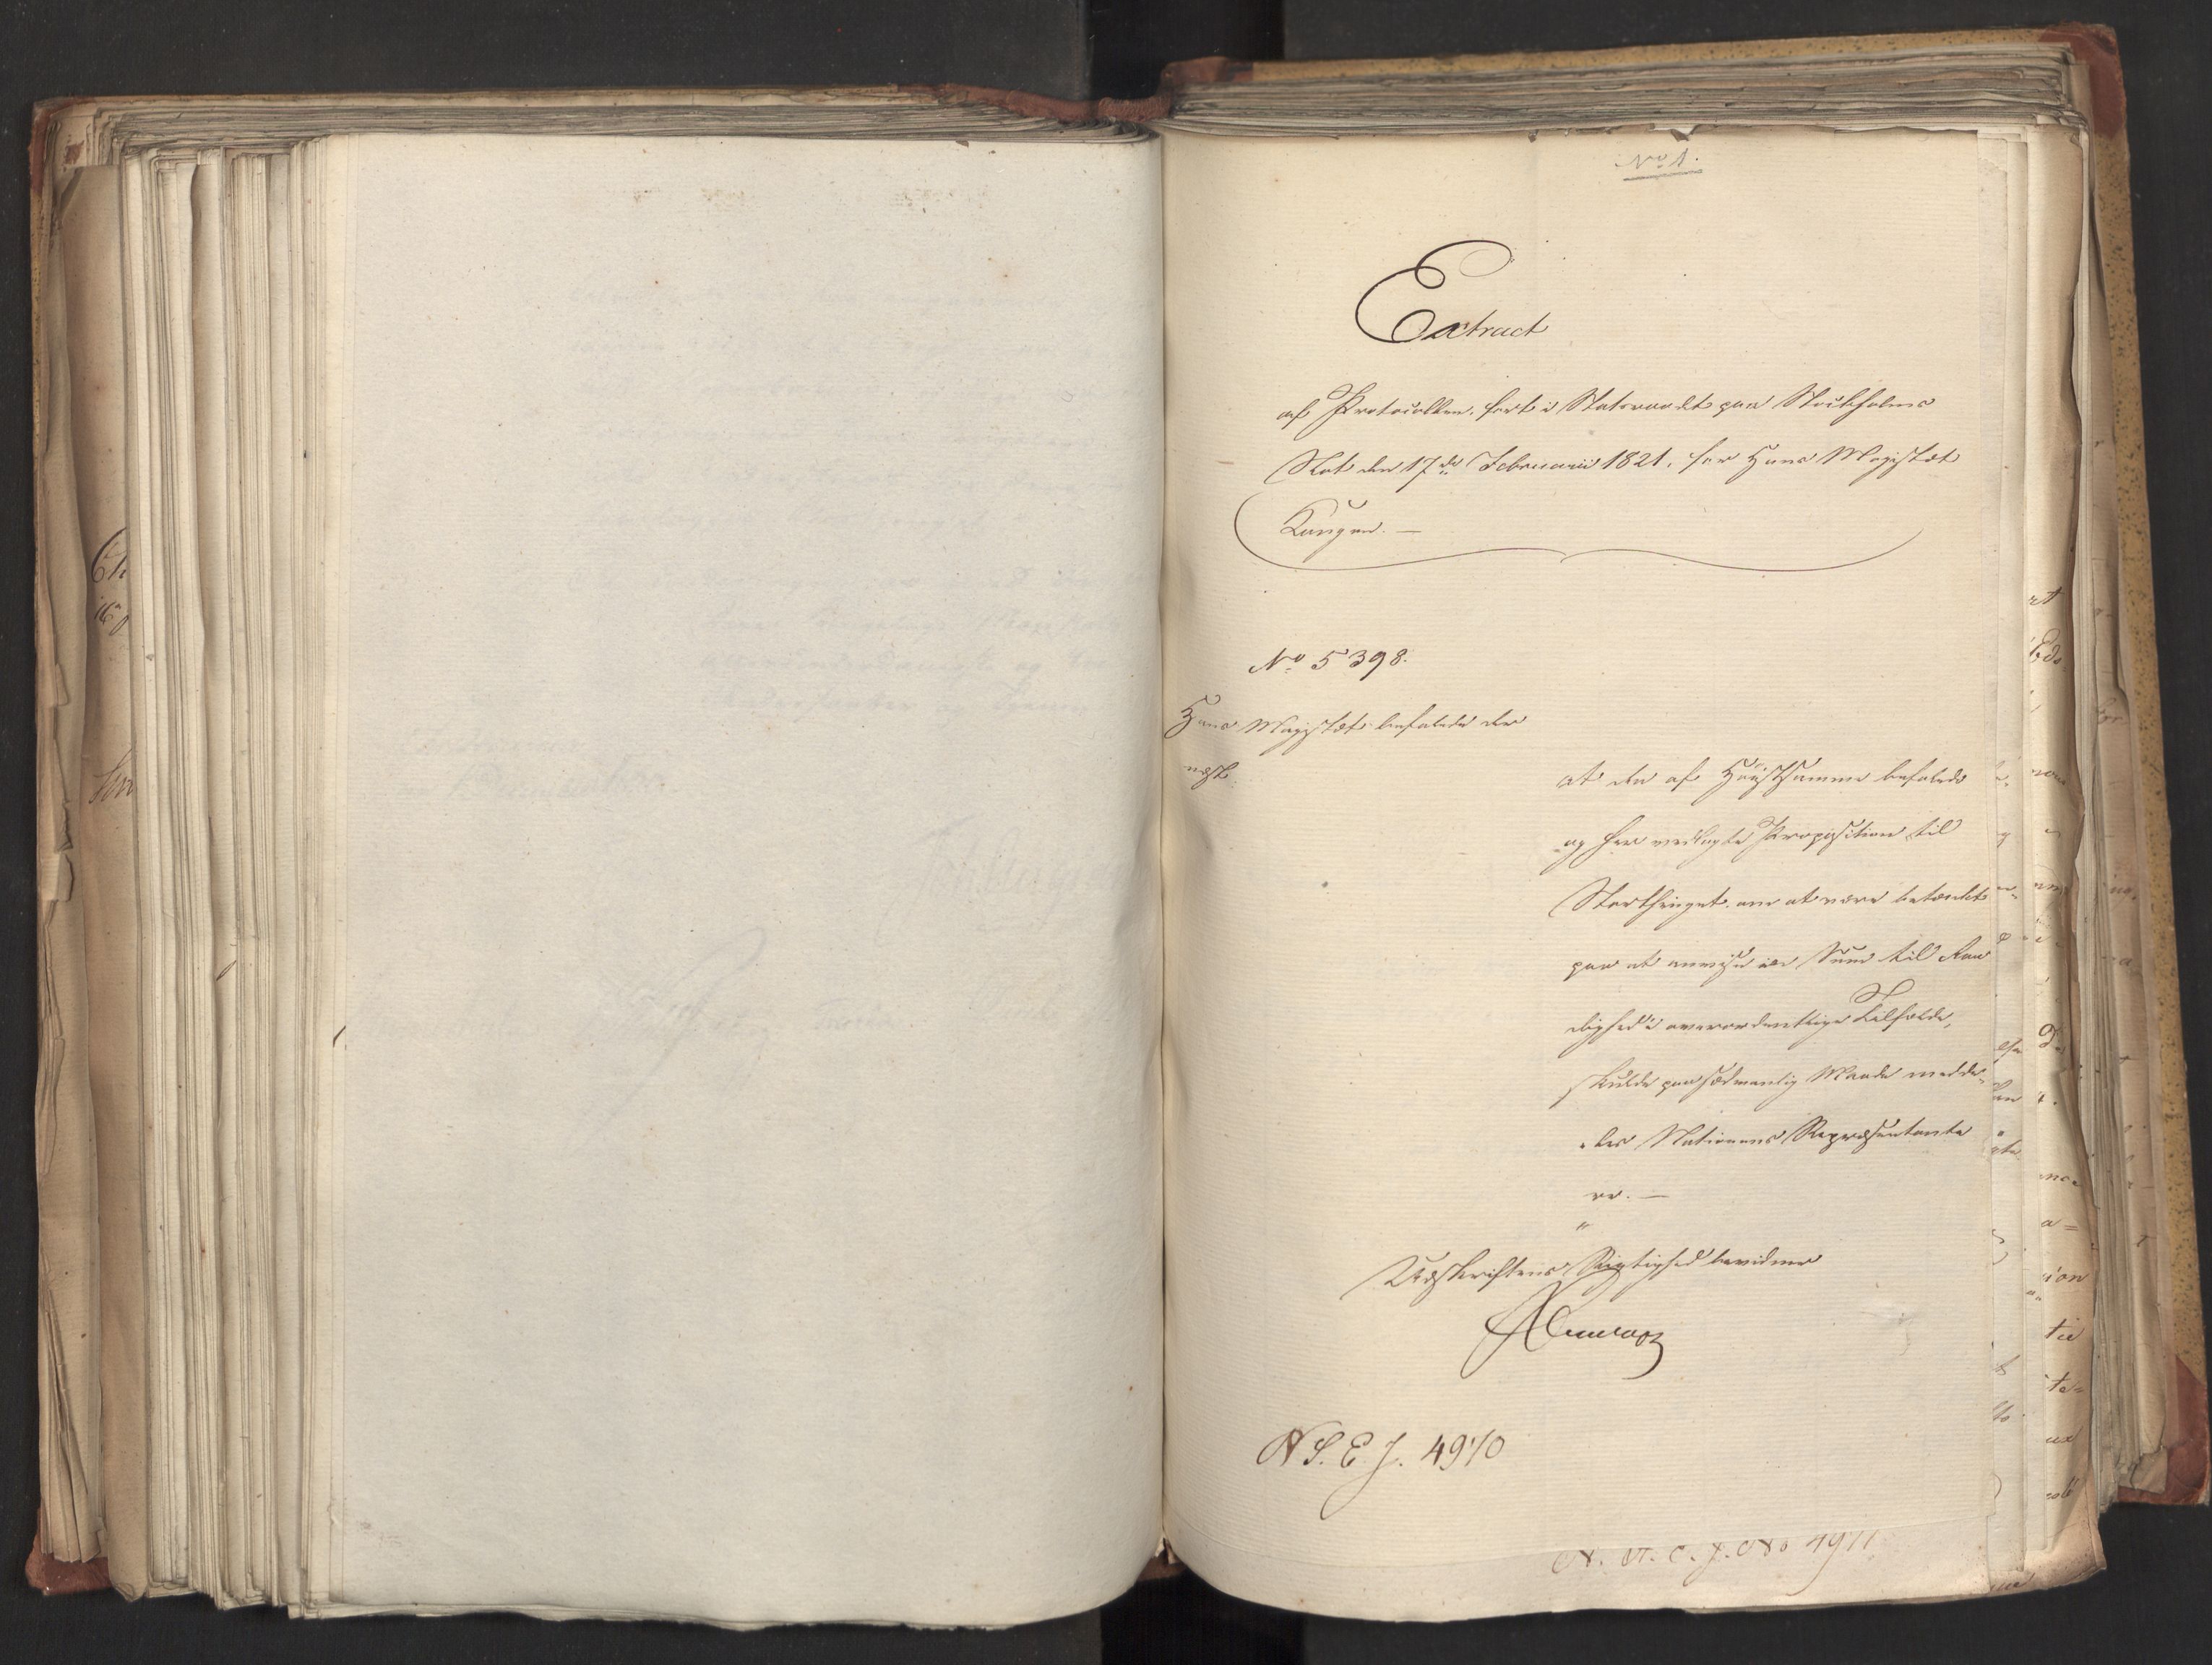 No 1.
Extract
af Protocollen, ført i Statsraadet paa Stockholms
Slot den 17de Februarii 1821, for Hans Majestæt
Kongen. —
No 5398.
Hans Majestæt befalede der
næst
at den af Høistsamme befalede
og her vedlagte Proposition til
Storthinget, om at være betænkt
paa at anvise en Sum til Raa
dighed i overordentlige Tilfælde,
skulde paa sædvanlig Maade medde-
les Nationens Repræsentante
re. —
Udskriftens Rigtighed bevidner
N S. E. J. 4970
N. S. E. J. No 4971